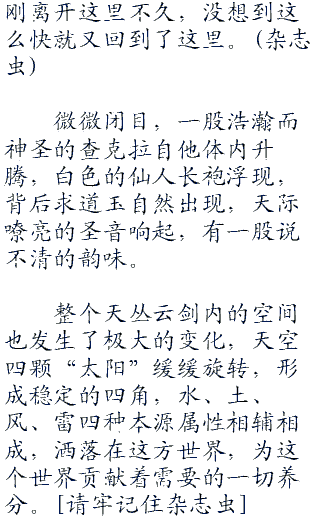 刚离开这里不久，没想到这
么快就又回到了这里。(杂志
虫)
微微闭目，一股浩瀚而
神圣的查克拉自他体内升
腾，白色的仙人长袍浮现，
背后求道玉自然出现，天际
嘹亮的圣音响起，有一股说
不清的韵味。
整个天丛云剑内的空间
也发生了极大的变化，天空
四颗“太阳”缓缓旋转，形
成稳定的四角，水、土、
风、雷四种本源属性相辅相
成，洒落在这方世界，为这
个世界贡献着需要的一切养
分。[请牢记住杂志虫]